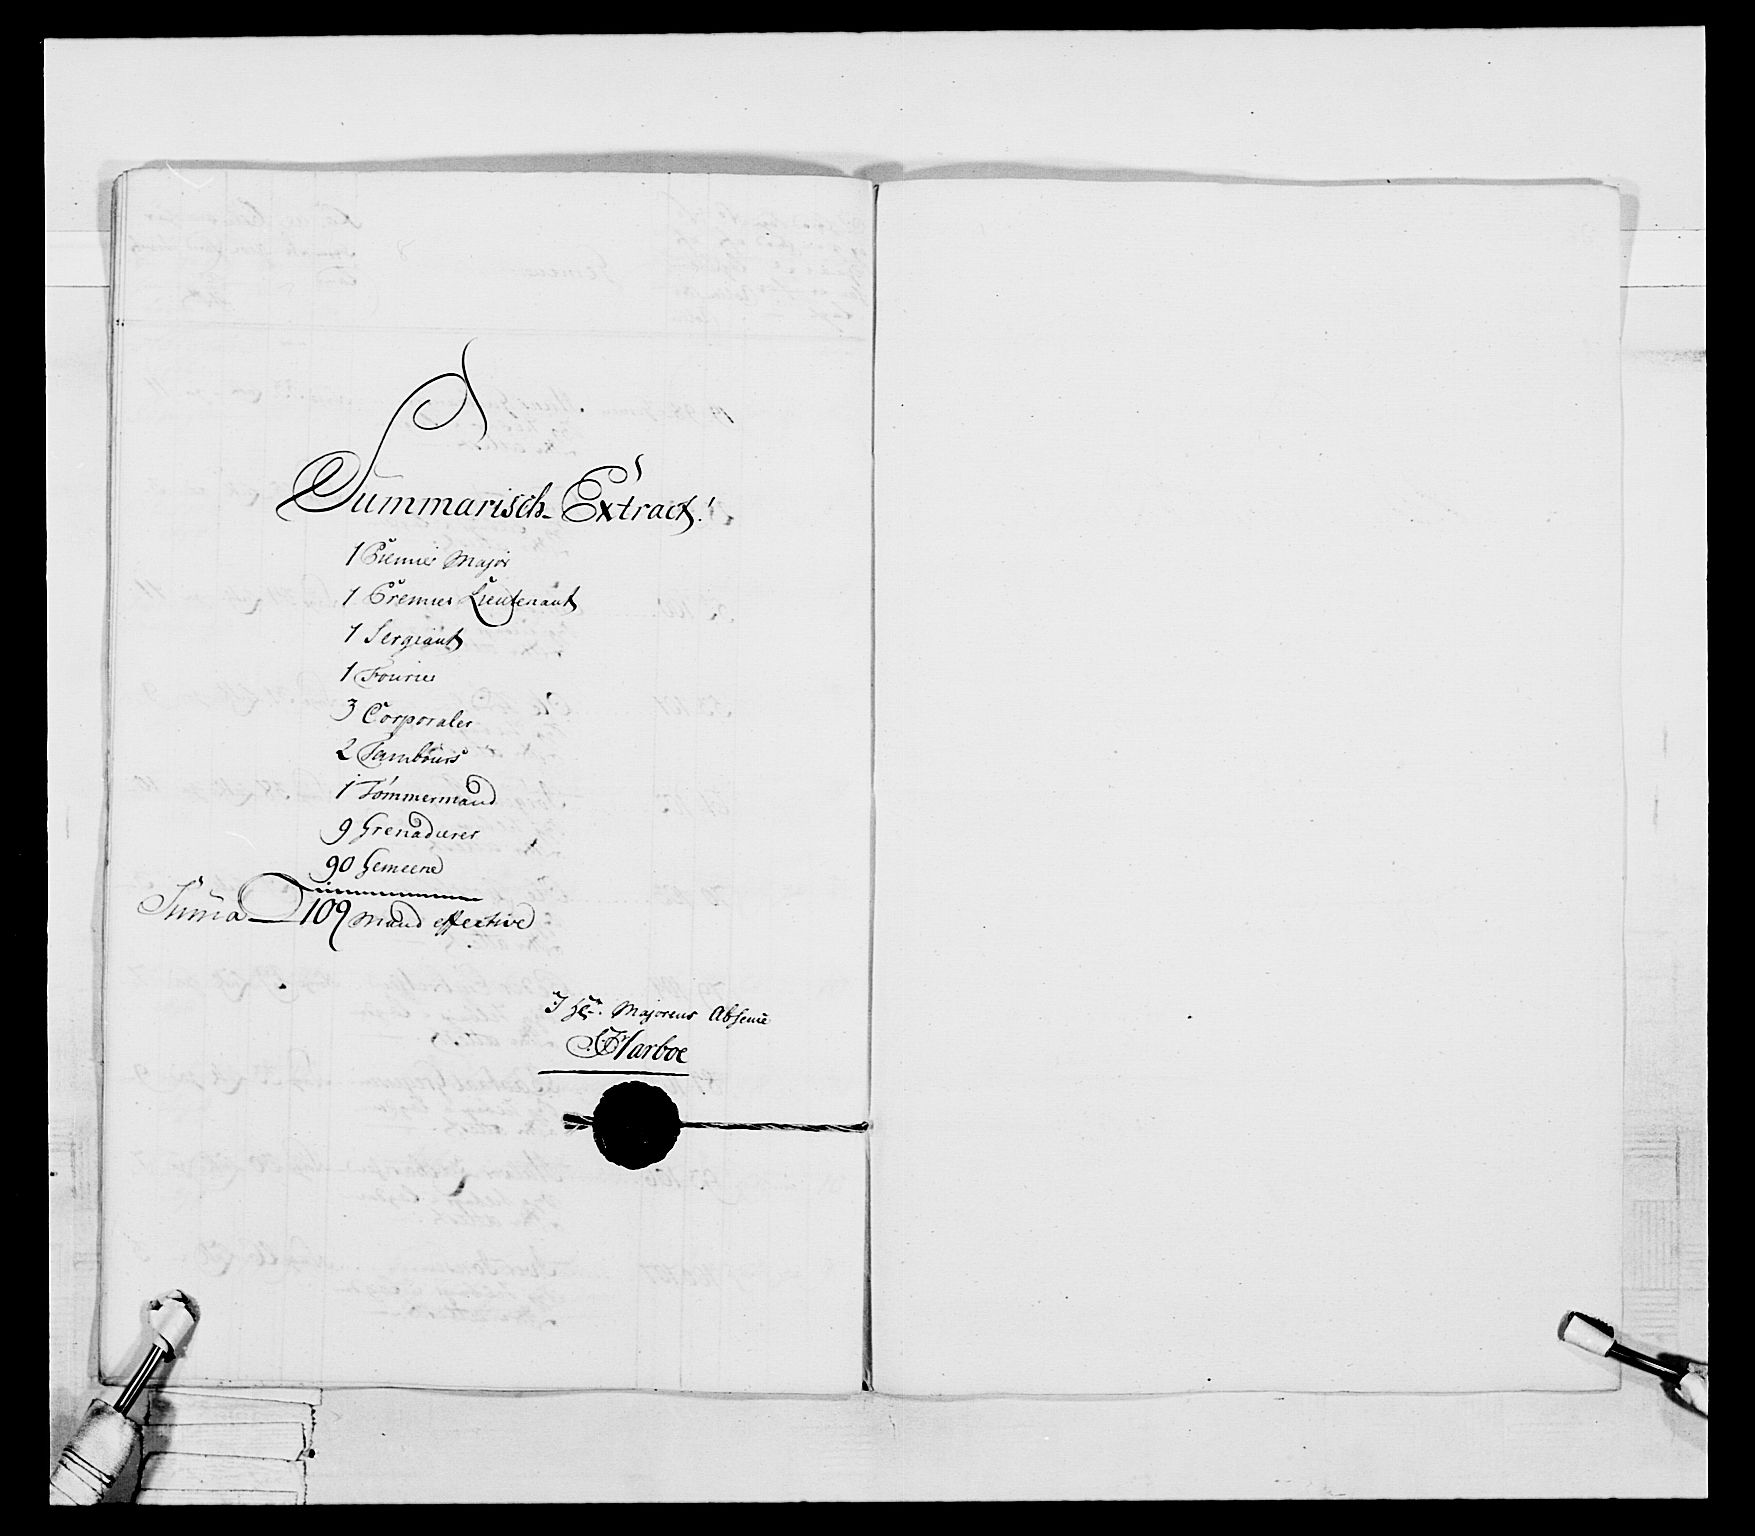 Summarisch Extract.
1 Premier Major
1 Premier Lieutenant
1 Sergiant
1 Fourier
3 Corporaler
2 Tambours
1 Tömmermand
9 Grenaderer
90 Gemeene
Suma 109 Mand effective
I Hr. Majorens Absence
Harboe